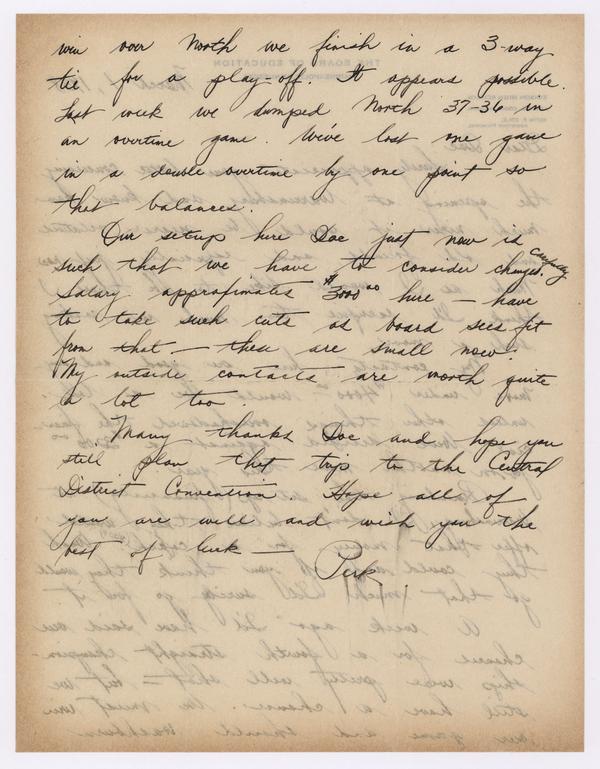 win over North we finish in a 3-way
tie for a play-off. It appears possible.
Last week we dumped North 37-36 in
an overtime game. We've lost one game
in a double overtime by one point so
that balances.
Our setup here Doc just now is
such that we have to consider changes. carefully
Salary approximates $3000 00 here — have
to take such cuts as board sees fit
from that — these are small now.
My outside contacts are worth quite
a lot too.
Many thanks Doc and hope you
still plan that trip to the Central
District Convention. Hope all of
you are well and wish you the
best of luck —
Perk